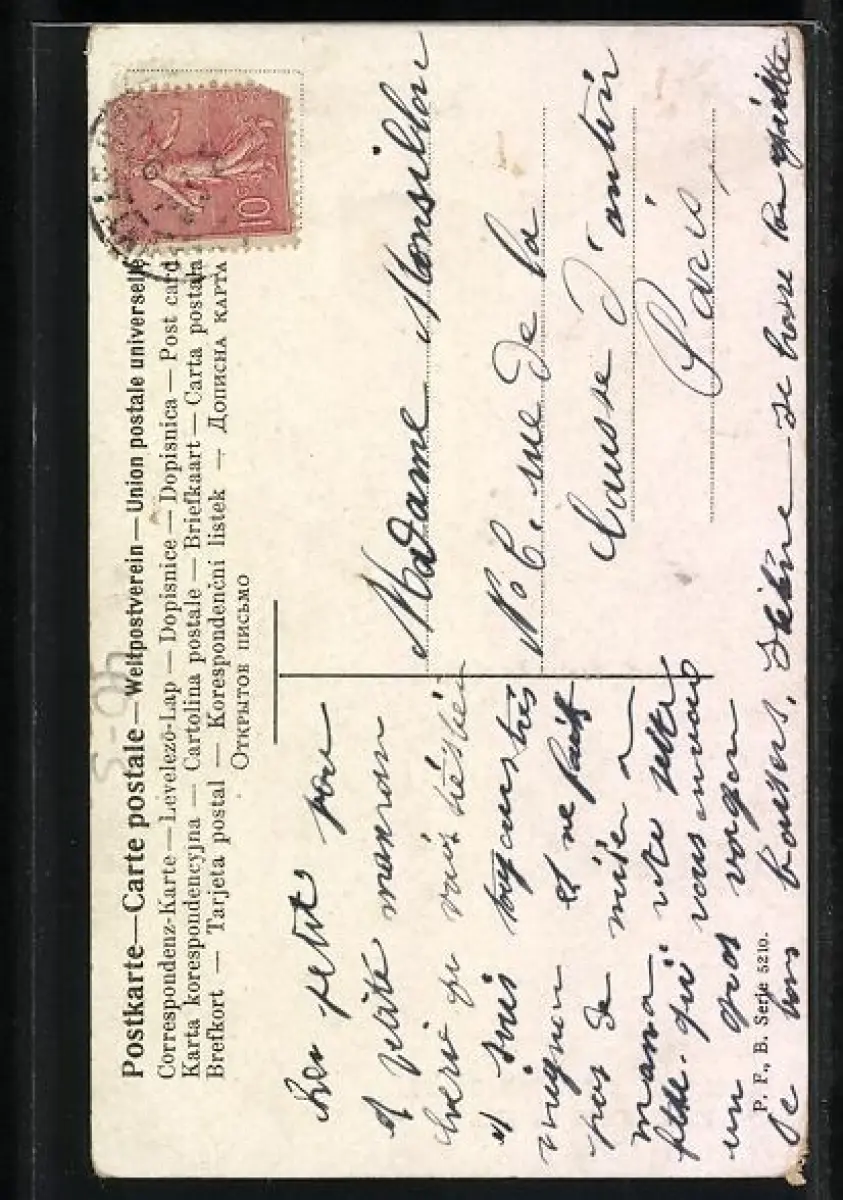 Postkarte—Carte postale—Weltpostverein—Union postale universelle
Correspondenz-Karte—Levelező-Lap—Dopisnice—Dopisnica—Post card
Karta korespondencyjna—Cartolina postale—Briefkaart—Carta postala
Brefkort — Tarjeta postal — Korespondenční listek — Дописна карта
Открытое письмо
10c
5-9h
Madame
No 6. rue de la
Causse d'antin
Paris,
petit
et petite maman
cherie je vais très bien
et suis toujours très
mignon et ne fait
pas de misère a
mama votre petite
fille. qui vous envoi
un gros
de bons baisers,
P. F., B. Serie 5210.